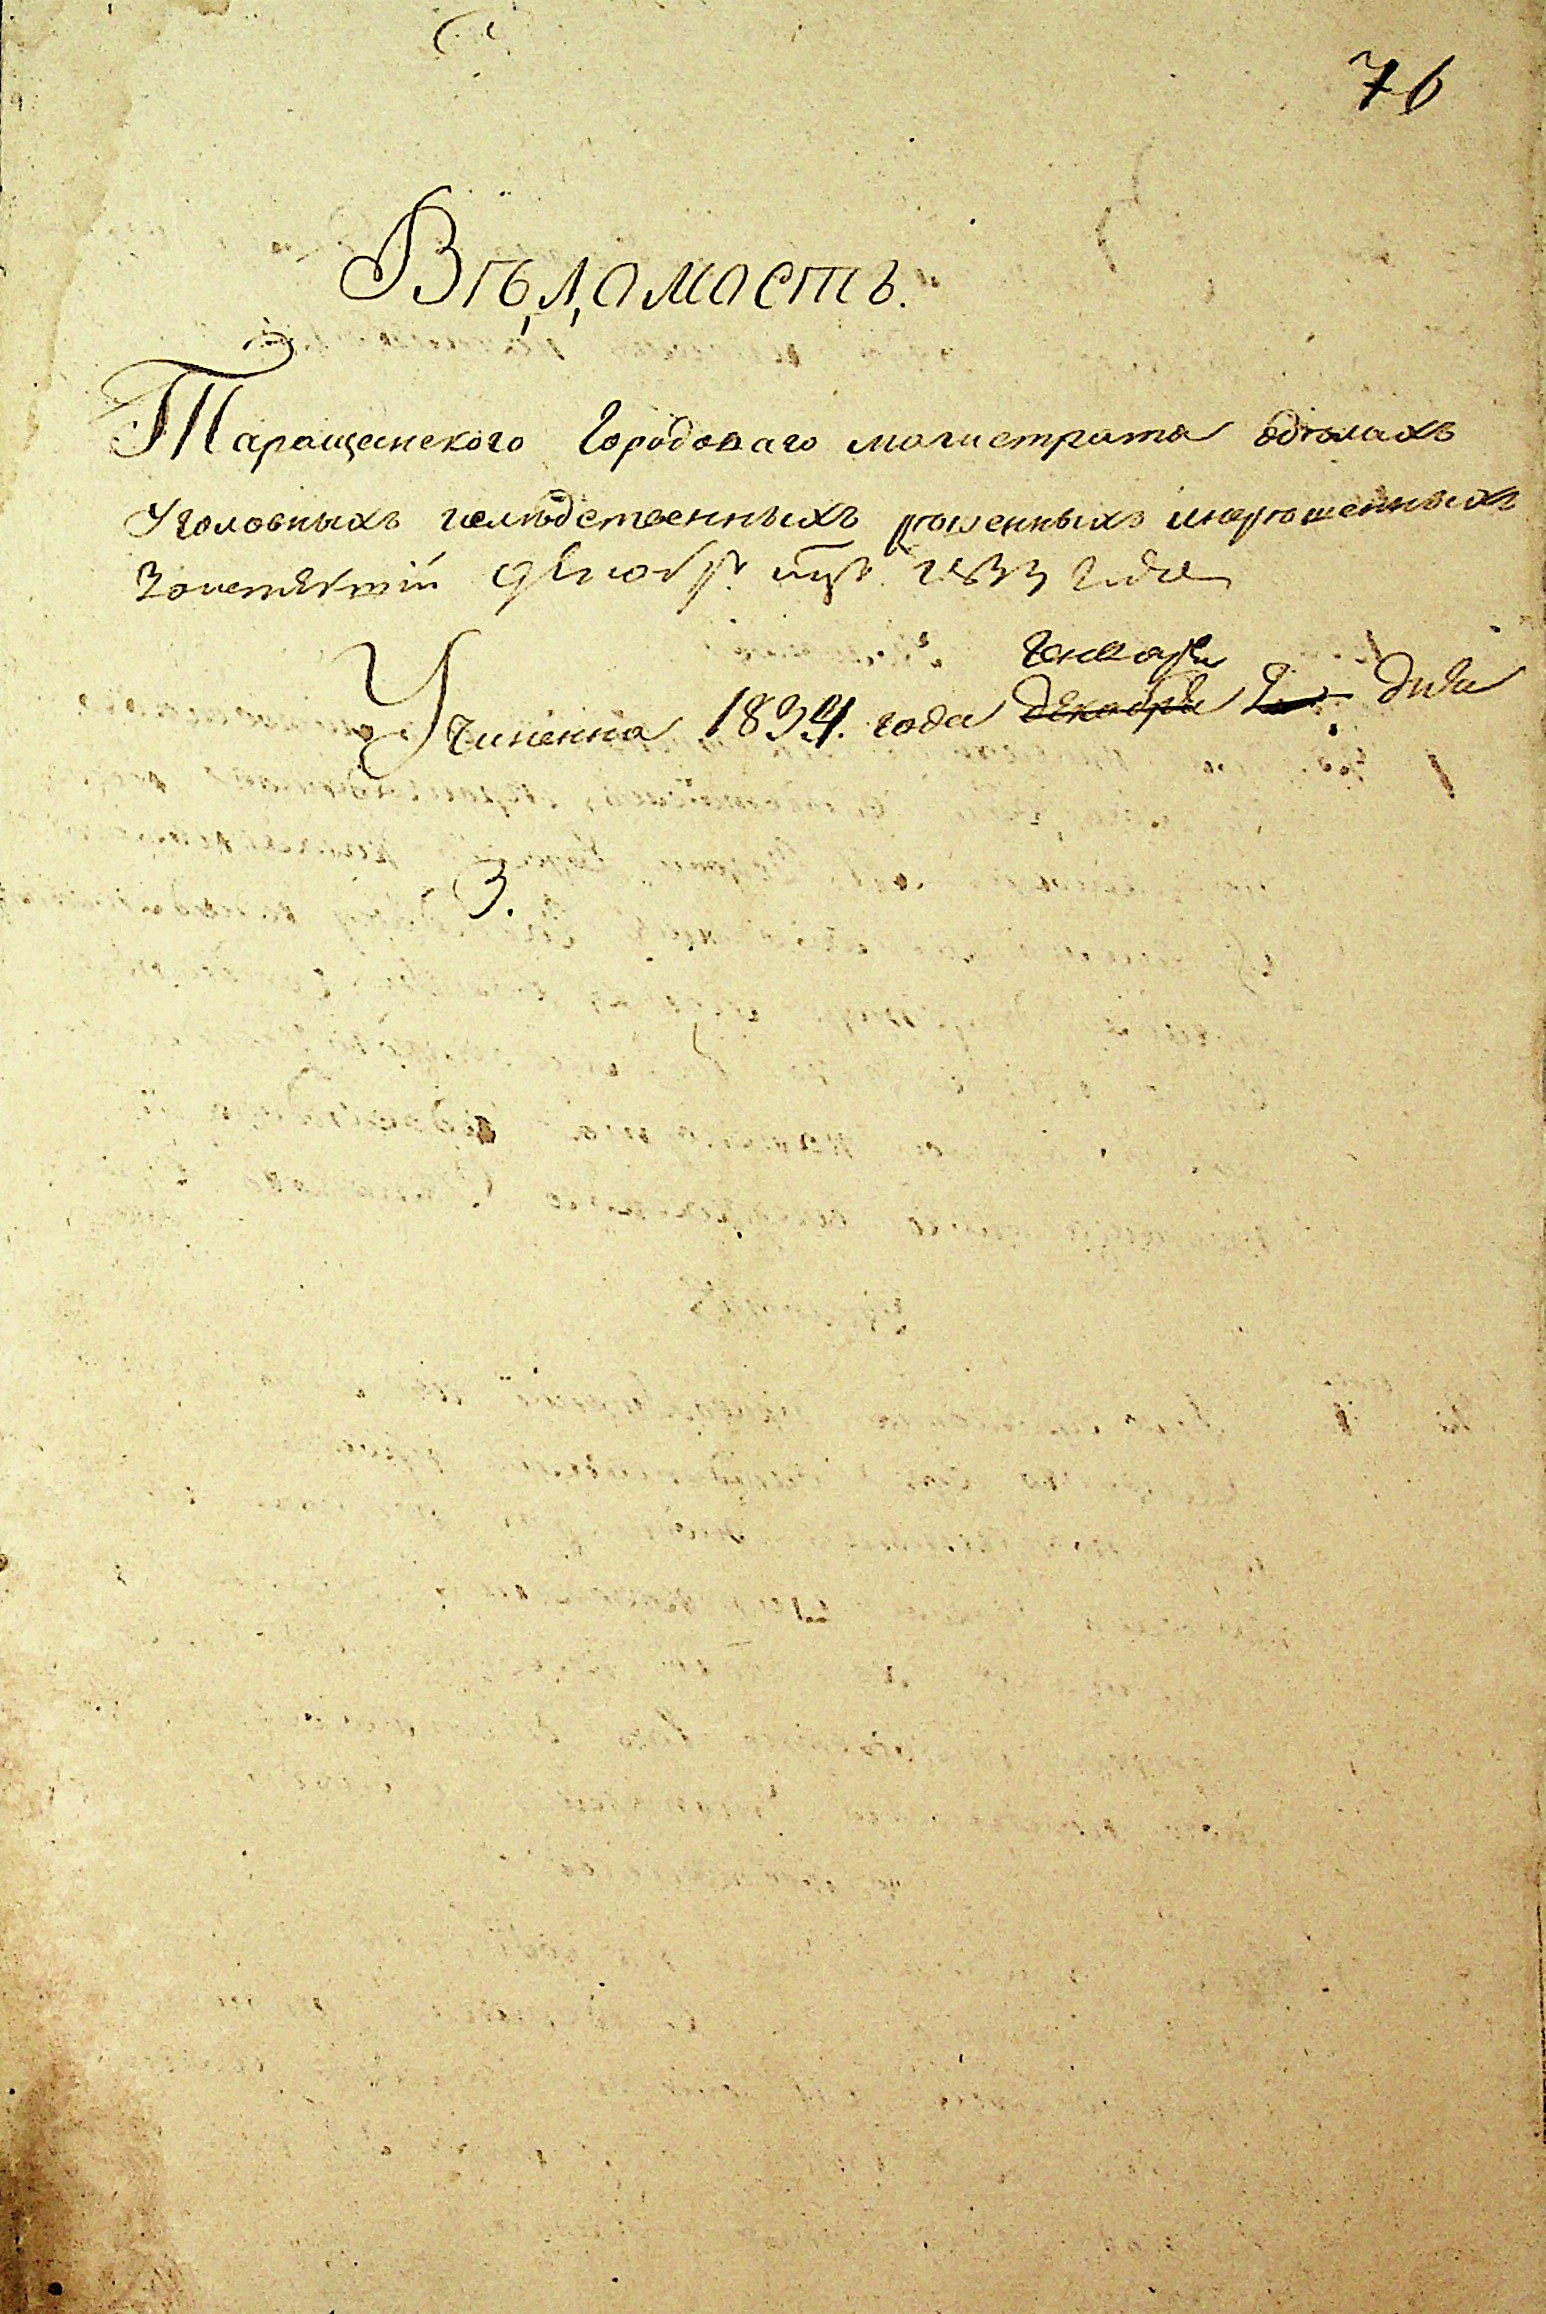 76
Вѣдомость.
Таращанского Городоваго магистрата одѣлахъ
Уголовныхъ ислѣдственныхъ рѣшенныхъ инерѣшенныхъ
Заистекшій мцъ 1833 Года
Генваря
Учиненна 1834. года декабря дня
3.